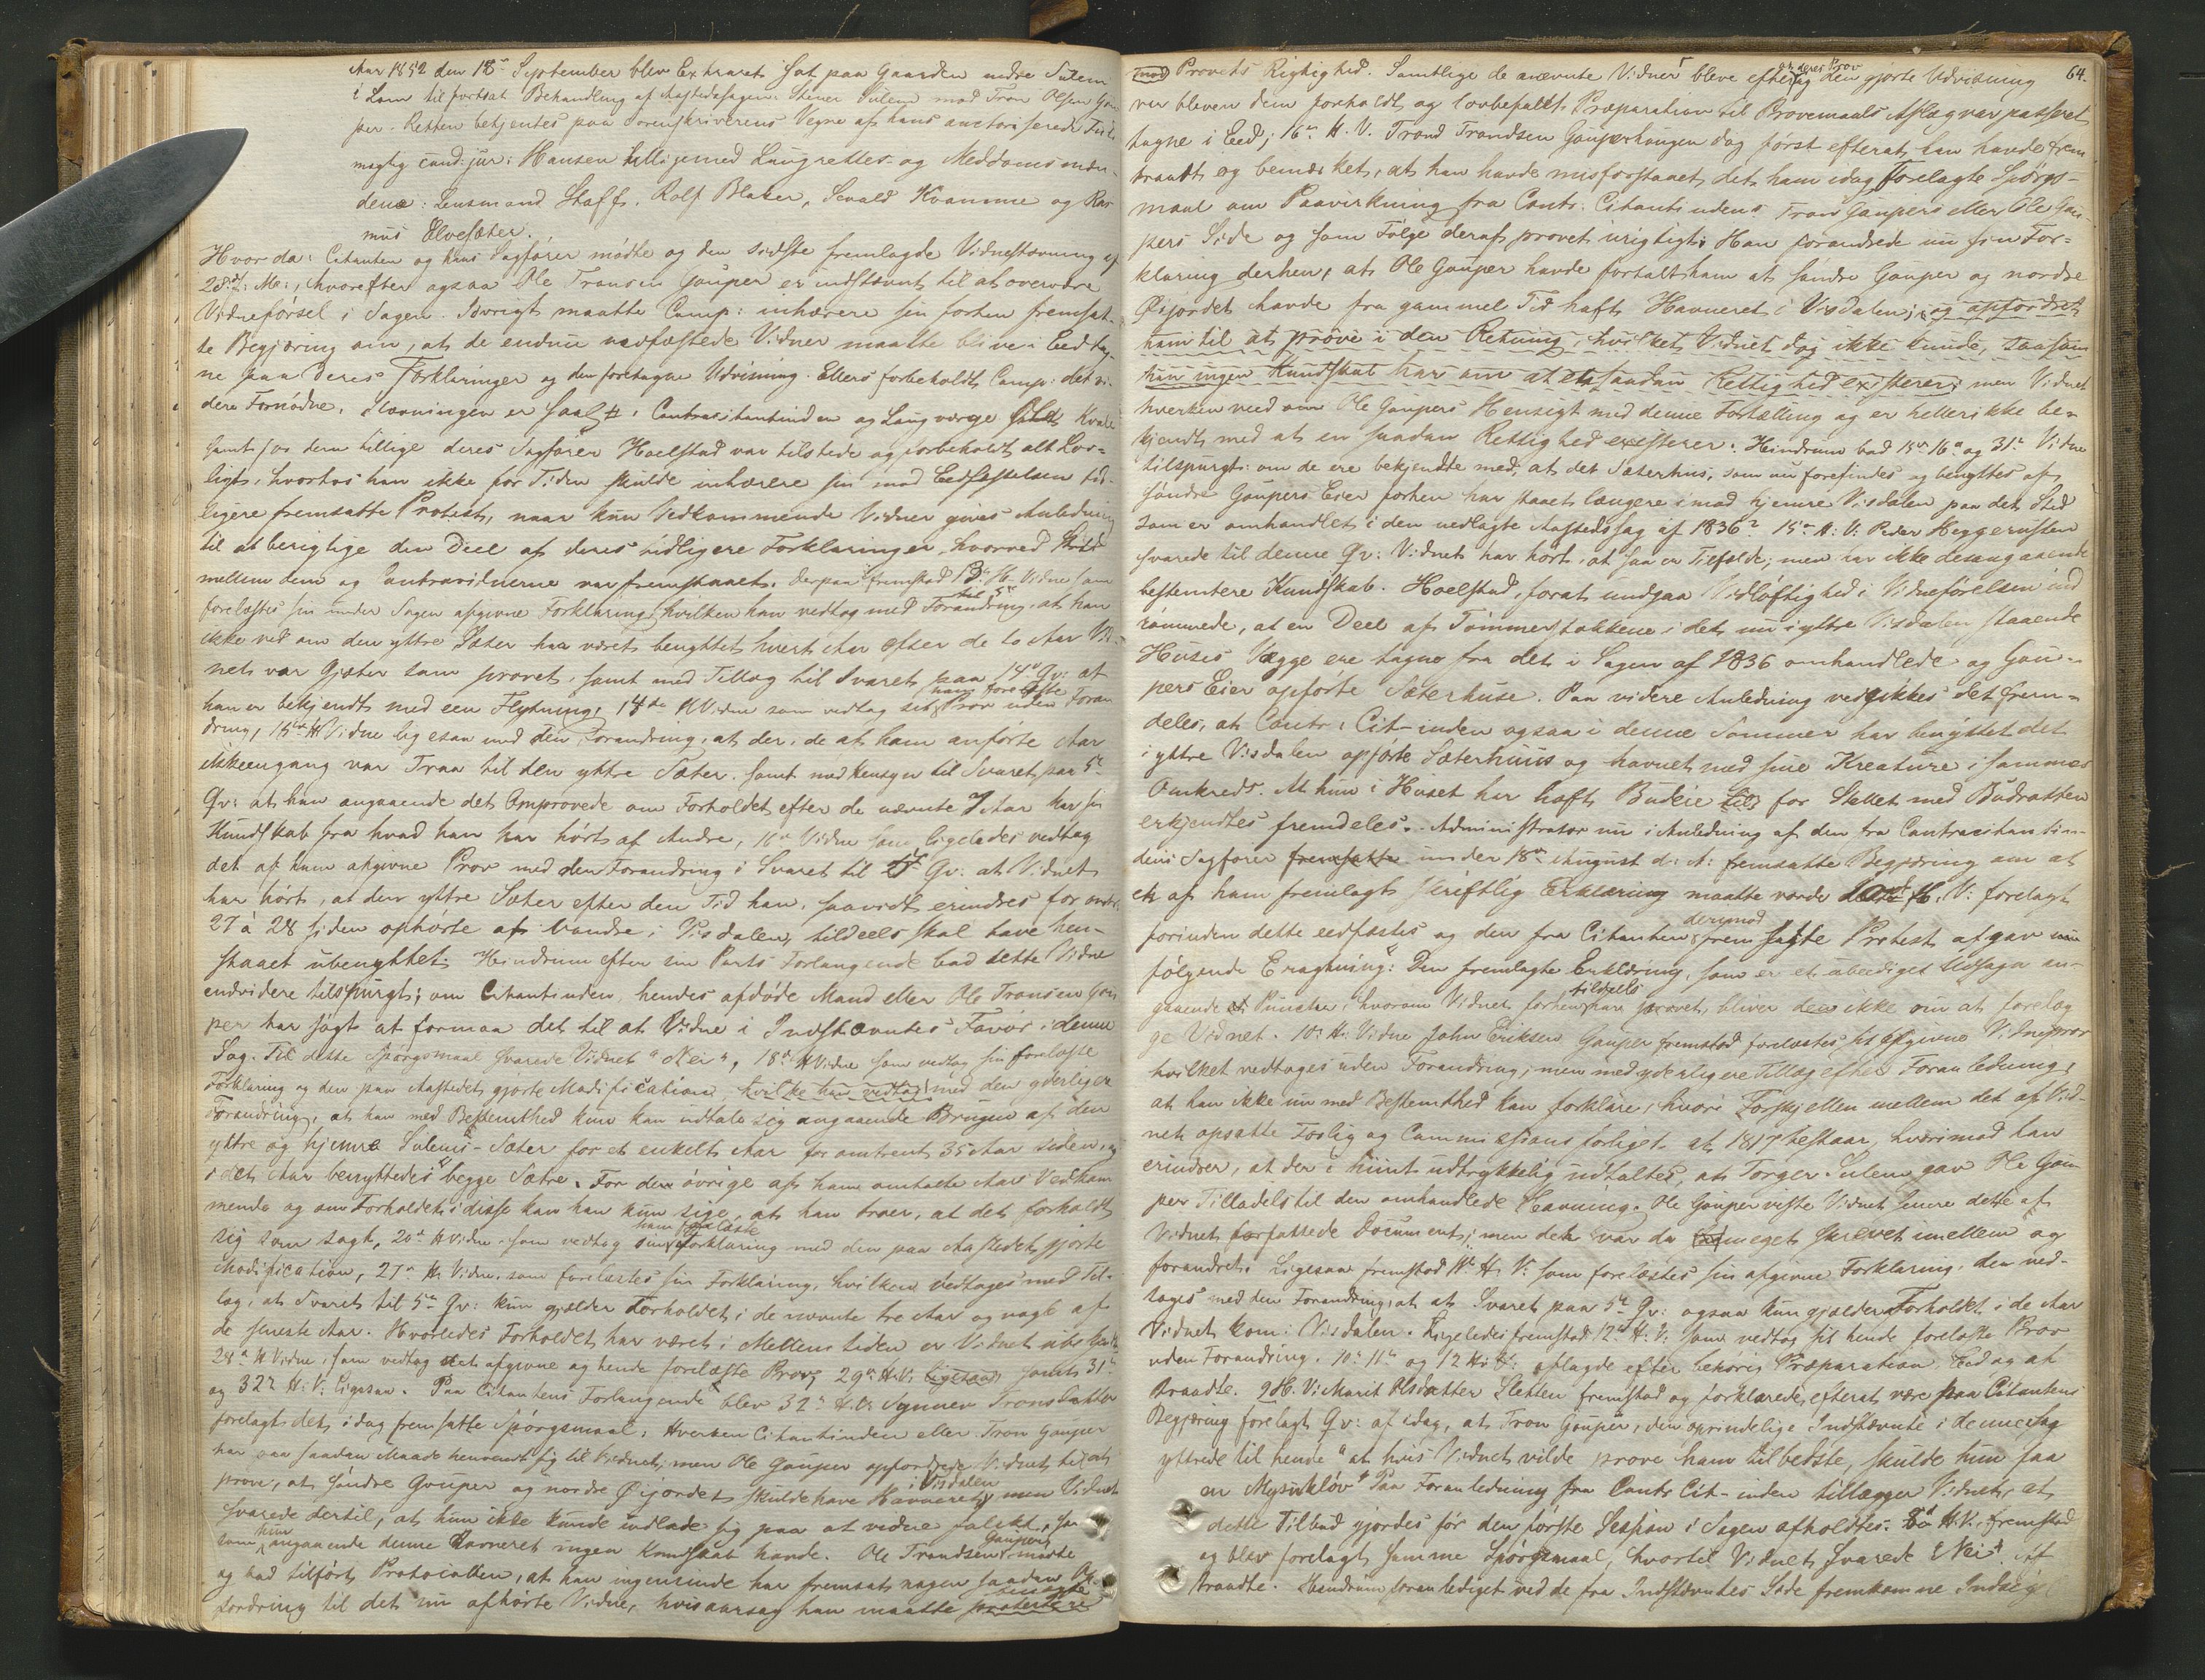 Aar 1852 den 18de September blev Extraret sat paa Gaarden nedre Sulem
i Lom til fortsat Behandling af Aastedssagen: Stener Sulem mod Tron Olsen Gau-
per. Retten betjentes paa Sorenskriverens Vegne af hans auctoriserede Fuld-
mægtig cand: jur: Hansen tilligemed Laugrettes- og Meddomsmæn-
dene: Lensmand Staff, Rolf Blaker, Sevald Kvamme og Ras-
mus Elvesæter.
Hvor da: Citanten og hans Sagfører mødte og den sidste fremlagde Vidnestævning af
28de f: M:, hvorefter ogsaa Ole Transen Gauper er indstævnt til at overvære
Vidneførsel i Sagen. Iøvrigt maatte Comp: inhærere sin forhen fremsat-
te Begjæring om, at de endnu uedfæstede Vidner maatte blive i Eed tag-
ne paa deres Forklaringer og den foretagne Udvisning. Ellers forbeholdt Comp: det vi-
dere Fornødne. Stævningen er saal. #. Contracitantinden og Laugværge
samt for dem tillige deres Sagfører Hoelstad var tilstede og forbeholdt alt Lov-
ligt, hvorhos han ikke for Tiden skulde inhærere sin mod Eedfæstelsen tid-
ligere fremsatte Protest, naar kun Vedkommende Vidner gives Anledning
til at berigtige den Deel af deres tidligere Forklaringer, hvorved Strid
mellem dem og Contravidnerne var fremstaaet. Derpaa fremstod 13de H. Vidne som
forelæstes sin under Sagen afgivne Forklaring, hvilken han vedtog med Forandring til 5te at han
ikke ved om den yttre Sæter har været benyttet hvert Aar efter de to Aar Vid-
net var Gjæter som provet, samt med Tillæg til Svaret paa 14de Qv: at
han er bekjendt med een Flytning, 14de H Vidne som vedtog sit ham forelæste Prov uden Foran-
dring, 15de H Vidne ligesaa med den Forandring, at der, de af ham anførte Aar
ikke engang var Traa til den yttre Sæter. samt med Hensyn til Svaret paa 5te
Qv: at han angaaende det Omprovede om Forholdet efter de nævnte 7 Aar har sin
Kundskab fra hvad han har hørt af Andre, 16de Vidne som ligeledes vedtog
det af ham afgivne Prov med den Forandring i Svaret til 5te Qv: at Vidnet
har hørt, at den yttre Sæter efter den Tid han, saavidt erindres for omtr.
27 à 28 siden ophørte at vandre i Visdalen, tildeels skal have hen-
staaet ubenyttet. Heindrum efter sin Parts Forlangende bad dette Vidne
endvidere tilspurgt; om Citantinden, hendes afdøde Mand eller Ole Transen Gau-
per har søgt at formaa det til at Vidne i Indstævntes Favør i denne
Sag. Til dette Spørgsmaal svarede Vidnet "Nei", 18de H Vidne som vedtog sin forelæste
Forklaring og den paa Aastedet gjorte Modification, hvilke han vedtog med den yderligere
Forandring, at han med Bestemthed kun kan udtale sig angaaende Brugen af den
yttre og hjemre Sulems-Sæter for et enkelt Aar for omtrent 35 Aar siden, og
i det Aar benyttedes begge Sætre. For den øvrige af ham omtalte Aar Vedkom-
mende og om Forholdet i disse kan han kun sige, at han troer, at det forholdt
sig som sagt, 20de H Vidne som vedtog sin ham forelæste Forklaring med den paa Aastedet gjorte
Modification, 21de H. Vidne, som forelæstes sin Forklaring, hvilken vedtages med Til-
læg, at Svaret til 5te Qv: kun gjælder Forholdet i de nævnte tre Aar og nogle af
de seneste Aar. Hvorledes Forholdet har været i Mellemtiden er Vidnet
28de H Vidne, som vedtog det afgivne og hende forelæste Prov, 29de H.V. ligesaa samt 31te
og 32te H: V: ligesaa. Paa Citantens Forlangende blev 32te H.V. Synnev Tronsdatter
forelagt det i dag fremsatte Spørgsmaal: Hverken Citantinden eller Tron Gauper
har paa saaden Maade henvendt sig til Vidnet, men Ole Gauper opfordrede Vidnet til at
prove, at søndre Gauper og nordre Øigjordet skulde have Havneret i Visdalen, men Vidnet
svarede dertil, at hun ikke kunde indlade sig paa at vidne falskt, saa-
som hun angaaende denne Havneret ingen Kundskab havde. Ole Trandsen Gauper mødte
og bad tilført Protocollen, at han ingensinde har fremsat nogen saadan Op-
fordring til det nu afhørte Vidne, hvisaarsag han maatte protestere
64.
mod Provets Rigtighed. Samtlige de nævnte Vidner bleve efterat deres Prov og den gjorte Udvisning
var bleven dem foreholdt og lovbefalet Præparation til Provemaals Aflæg var passeret
tagne i Eed; 16de H. V. Trond Trondsen Gauperhaugen dog først efterat han havde frem-
traadt og bemærket, at han havde misforstaaet det ham idag Forelagte Spørgs-
maal om Paavirkning fra Contr: Citantindens Trons Gaupers eller Ole Gau-
pers Side og som Følge deraf provet urigtigt: Han forandrede nu sin For-
klaring derhen, at Ole Gauper havde fortalt ham at søndre Gauper og nordre
Øigjordet havde fra gammel Tid haft Havneret i Visdalen; og opfordret
ham til at prove i den Retning, hvilket Vidnet dog ikke kunde, saasom
han ingen Kundskab har om at en saadan Rettighed existerer, men Vidnet
hverken veed om Ole Gaupers Hensigt med denne Fortælling og er heller ikke be-
kjendt med at en saadan Rettighed existerer. Heindrum bad 15de 16de og 31te Vidne
tilspurgt: om de ere bekjendte med, at det Sæterhus, som nu forefindes og benyttes af
søndre Gaupers Eier forhen har staaet længere ind mod hjemre Visdalen paa det Sted
som er omhandlet i den nedlagte Aastedssag af 1836? 15de H: V: Peder Heggerusten
svarede til denne Qv: Vidnet har hørt, at saa er Tilfælde; men har ikke desangaaende
bestemtere Kundskab. Hoelstad, forat undgaa Vidløftighed i Vidneførelsen ind-
rømmede, at en Deel af Tømmerstokkene i det nu i yttre Visdalen staaende
Huses Vægge ere tagne fra det i Sagen af 1836 omhandlede og Gau-
pers Eier opførte Sæterhuse. Paa videre Anledning vedgikkes det frem-
deles, at Contr: Cit-inden ogsaa i denne Sommer har benyttet det
i yttre Visdalen opførte Sæterhuus og havnet med sine Kreature i sammes
Omkreds. At hun i Huset har haft Budeie for Stellet med Budraatten
erkjendtes fremdeles. Administrator nu i Anledning af den fra Contracitantin-
dens Sagfører fremsatte under 18de August d: A: fremsatte Begjæring om at
et af ham fremlagt skriftlig Erklæring maatte vorde H. V: forelagt
forinden dette eedfæstes og den fra Citanten derimod fremsatte Protest afgav
følgende Eragtning: Den fremlagte Erklæring, som er et ubeediget Udsagn an-
gaaende Puncter i hvorom Vidnet forhen tildeels har provet, bliver ikke om at forelæg-
ge Vidnet. 10de H: Vidne John Eriksen Gauper fremstod forelæstes sit afgivne Vidneprov
hvilket vedtages uden Forandring, men med yderligere Tillæg efter Foranledning,
at han ikke nu med Bestemthed kan forklare, hvori Forskjellen mellem det af Vid-
net opsatte Forlig og Commissionsforliget at 1817 bestaar, hvorimod han
erindrer, at der i hiint udtrykkelig udtaltes, at Torger Sulem gav Ole Gau-
per Tilladels til den omhandlede Havning. Ole Gauper viste Vidnet senere dette af
Vidnet forfattede Document; men det var da meget skrevet imellem og
forandret. Ligesaa fremstod 11te H. V: som forelæstes sin afgivne Forklaring, den ved-
toges med den Forandring, at at Svaret paa 5te Qv: ogsaa kun gjælder Forholdet i de Aar
Vidnet kom i Visdalen. Ligeledes fremstod 12te H: V: som vedtog sit hende forelæste Prov
uden Forandring. 10de 11te og 12 H: V: aflagde efter behørig Præparation Eed og at
traadte. 9 H. V: Marit Olsdatter Sletten fremstod og forklarede, efterat være paa Citantens
Begjæring forelagt Qv: af idag, at Tron Gauper, den oprindelige Indstævnte i denne Sag
yttrede til hende "at hvis Vidnet vilde prove ham tilbedste, skulde hun faa
en Mysukløv" Paa Foranledning fra Contr Cit-inden tillægger Vidnet, at
dette Tilbud gjordes før den første Session i Sagen afholdtes. 8de H.V. fremstod
og blev forelagt samme Spørgsmaal, hvortil Vidnet svarede "Nei". Af
traadte. Heindrum foranlediget ved de fra Indstævntes Side fremkomne